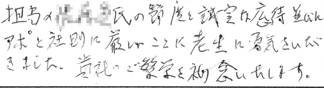 担当の 氏の節度と誠実な応待並びに
アポと社則に厳しいことに老生に勇気をいただ
きました。貴社のご繁栄を祈念いたします。